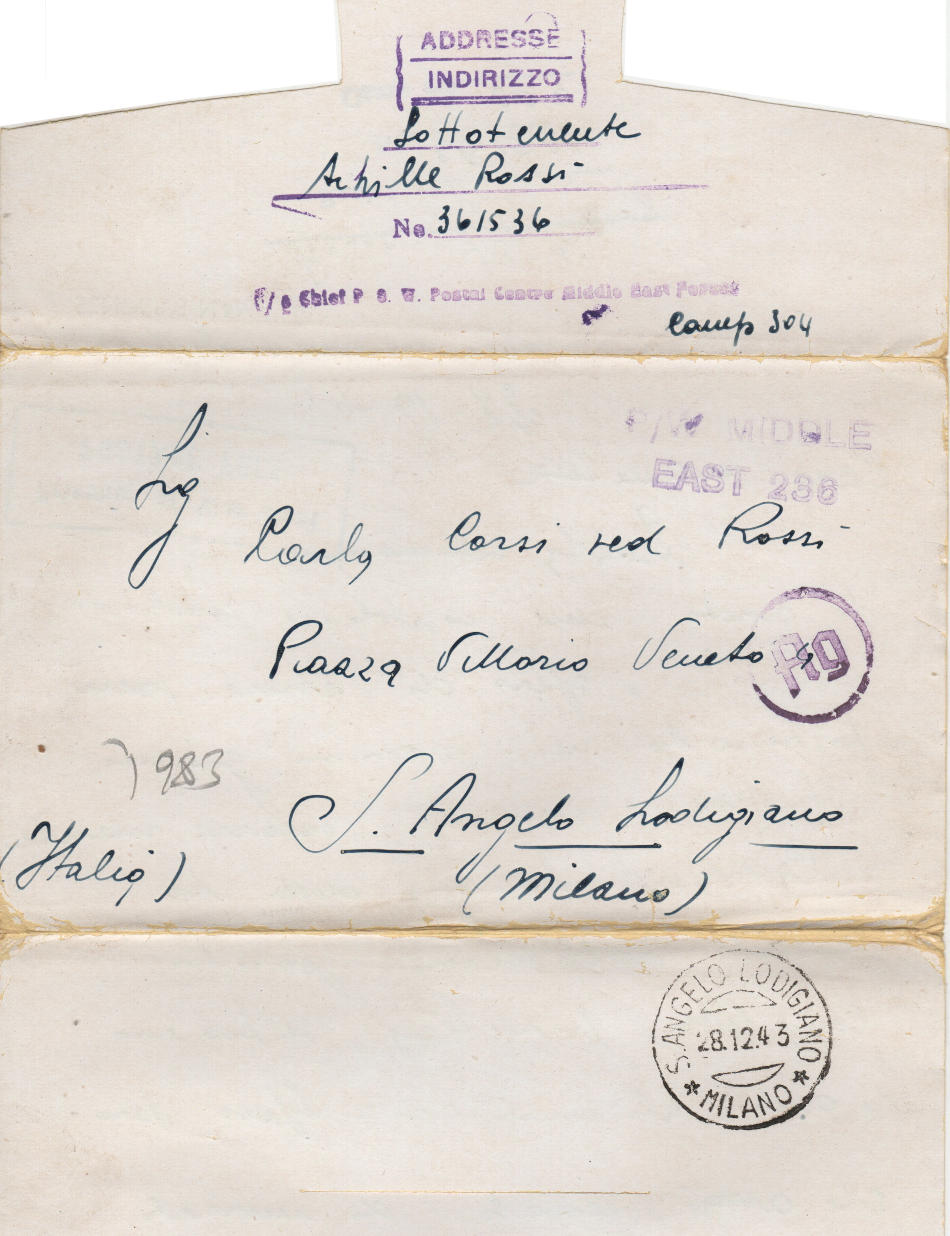 ADDRESSE
INDIRIZZO
Sottotenente
Achille Rossi
No. 361536
C/o Chief P. O. W. Postal Centre Middle East Forces
Camp 304
P/W MIDDLE
EAST 236
Sig
Carla Corsi ved Rossi
Piazza Vittorio Veneto 4
Ag
983
S. Angelo Lodigiano
(Italia)
(Milano)
S. ANGELO LODIGIANO
28.12.43
* MILANO *